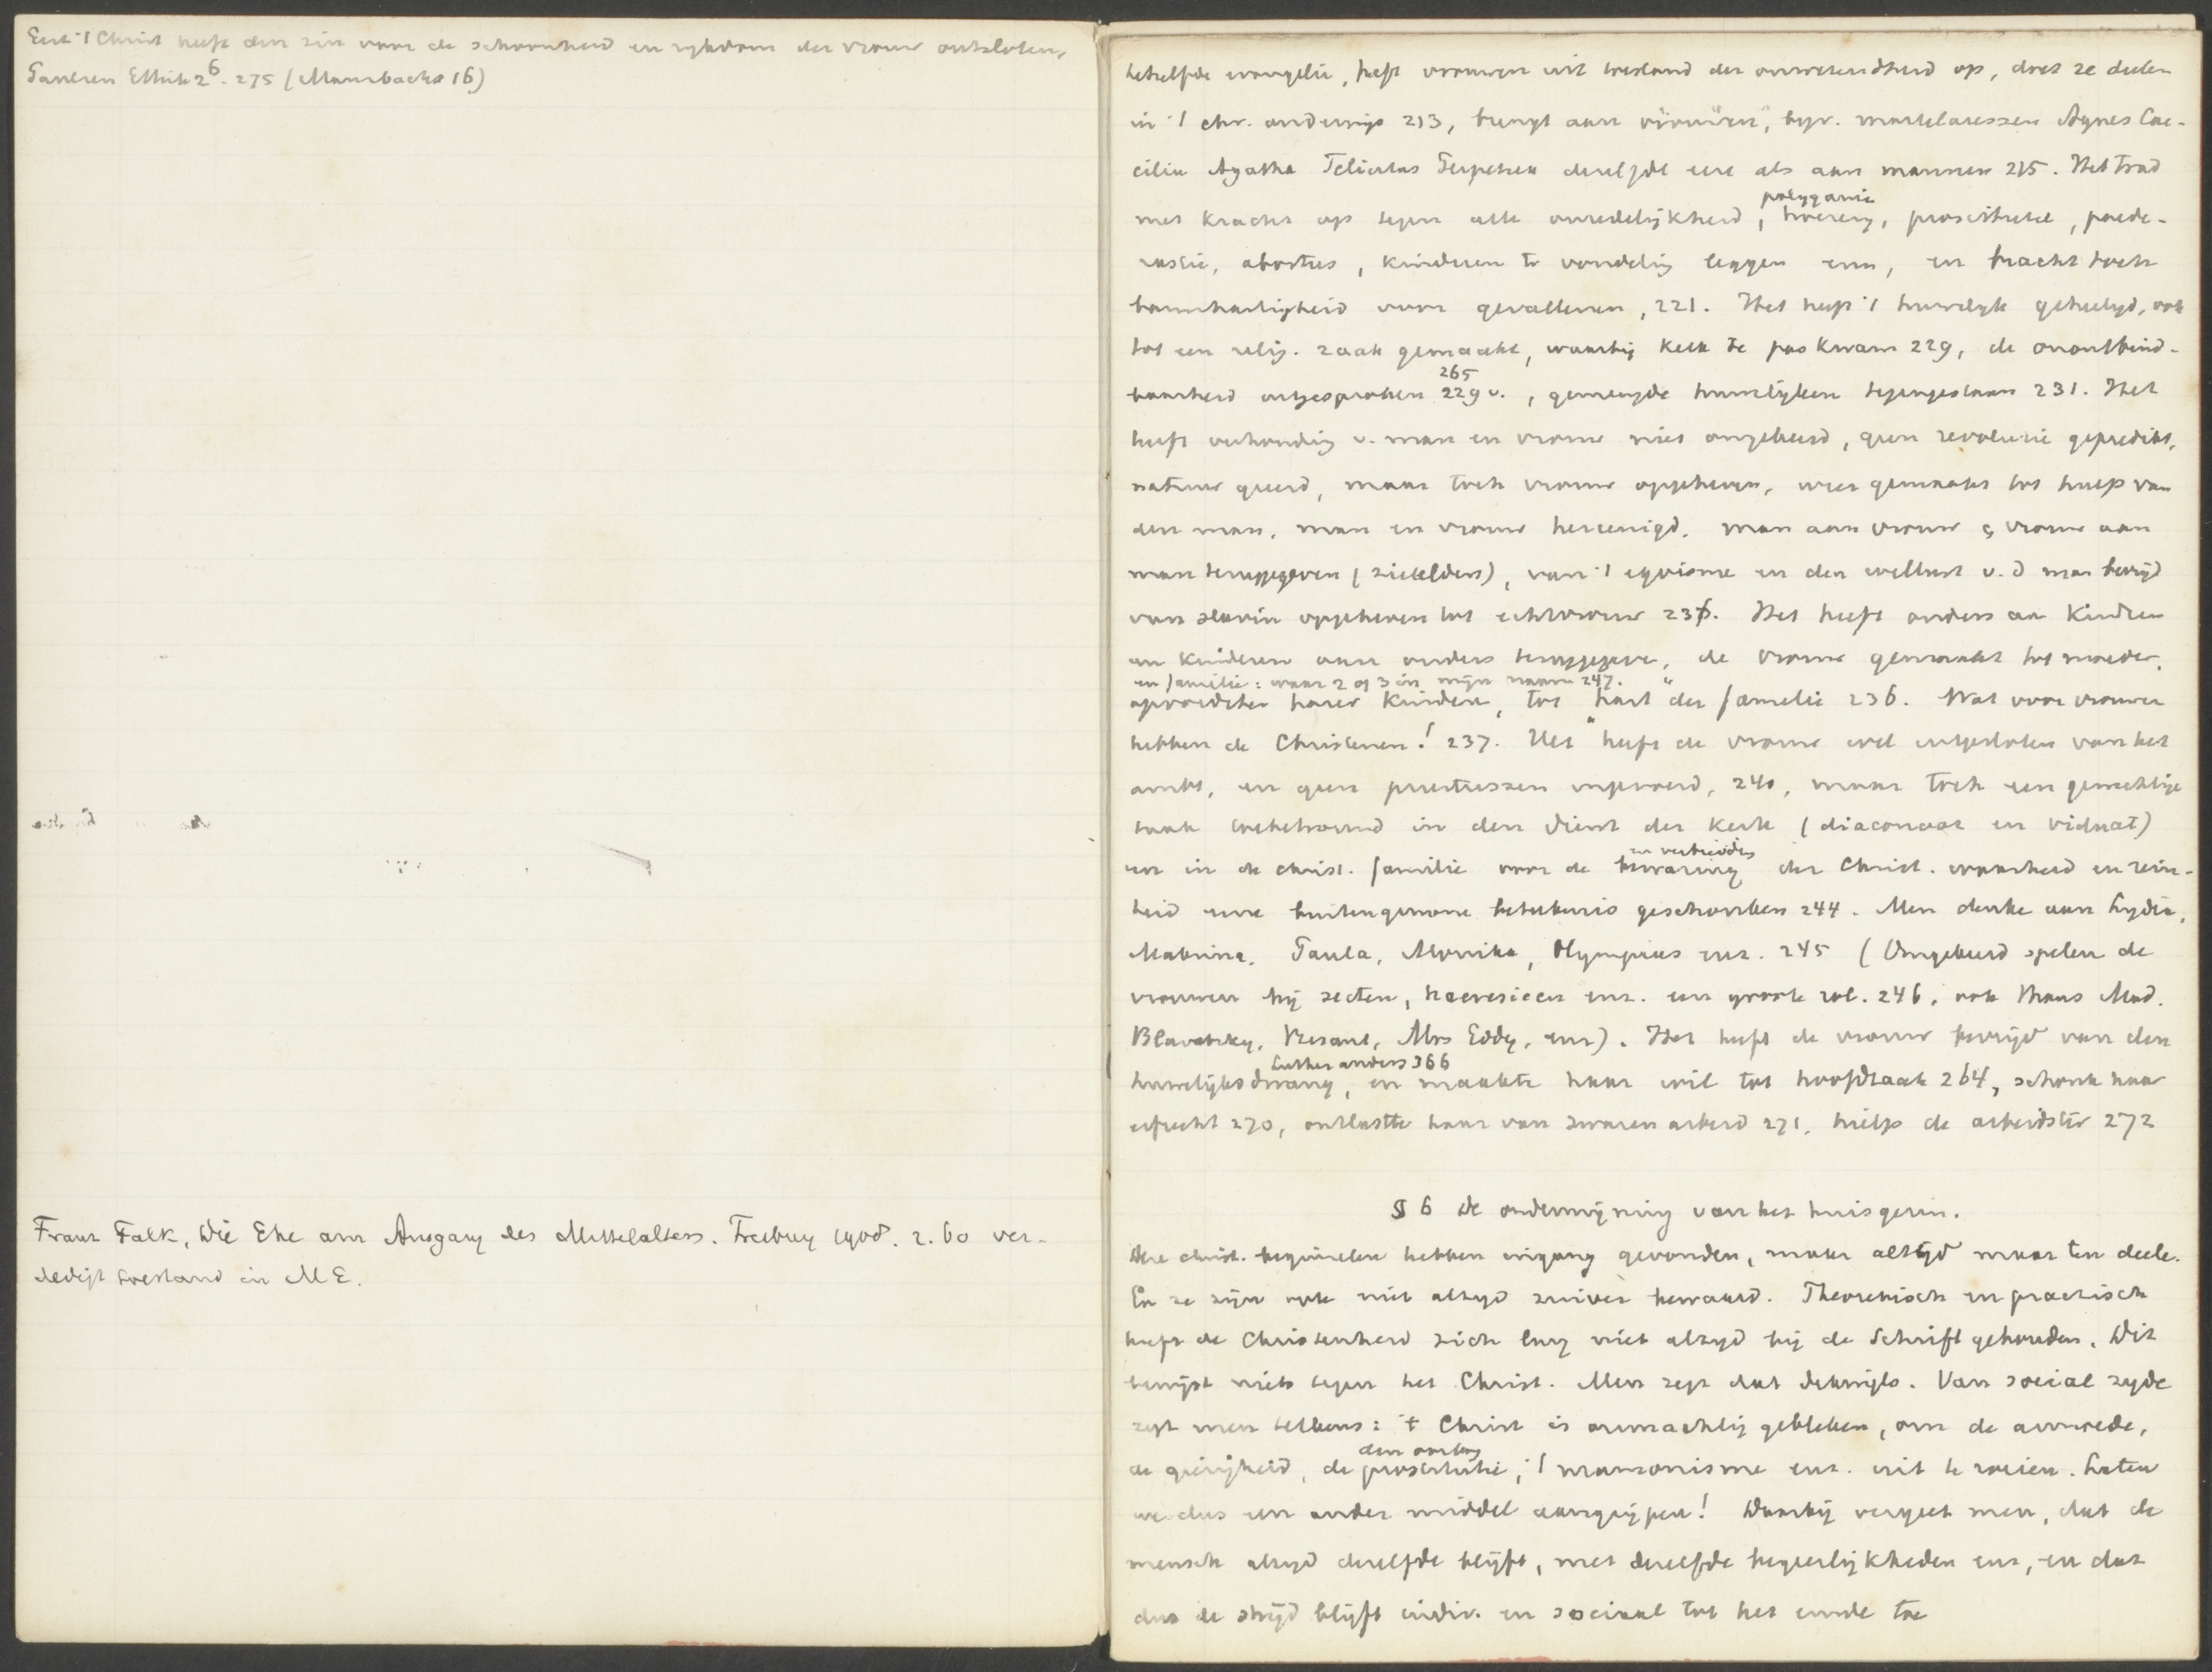 Eerst 't Christ heeft den zin voor de schoonheid en rykdom der vrouw ontsloten,
Paulsen Ethik 2⁶. 275 (Mausbach 16)
Franz Falk, Die Ehe am Ausgang des Mittelalters. Freiburg 1908. 2.60 ver-
dedigt toestand in ME.
hetzelfde evangelie, heft vrouwen uit toestand der onwetendheid op, doet ze deelen
in 't chr. onderwijs 213, brengt aan "vrouwen", byv. martelaressen Agnes Cae-
cilia Agatha Felicitas Perpetua dezelfde eere als aan mannen 215. Het trad
met kracht op tegen alle onzedelijkheid, hoererij, prostitutie, paede-
polygamie
rastie, abortus, kinderen te vondeling leggen enz, en bracht toch
barmhartigheid voor gevallenen, 221. Het heeft 't huwelyk geheiligd, ook
tot een relig. zaak gemaakt, waarbij kerk te pas kwam 229, de onontbind-
baarheid uitgesproken 229 v., gemengde huwelijken tegengestaan 231. Het
265
heeft verhouding v. man en vrouw niet omgekeerd, geen revolutie gepredikt,
natuur geëerd, maar toch vrouw opgeheven, weer gemaakt tot hulp van
den man, man en vrouw hereenigd, man aan vrouw & vrouw aan
man teruggegeven, van 't egoisme en den wellust v. d man bevrijd
van slavin opgeheven tot echtvrouw 236. Het heeft ouders aan kinderen
en kinderen aan ouders teruggegeven, de vrouw gemaakt tot moeder,
en familie: waar 2 of 3 in mijn naam 247.
opvoedster harer kinderen, tot "hart" der familie 236. Wat voor vrouwen
hebben de Christenen! 237. Het heeft de vrouw wel uitgesloten van het
ambt, en geen priestressen ingevoerd, 240, maar toch een gewichtige
taak toebetrouwd in den dienst der kerk (diaconaat en viduat)
en in de christ. familie voor de bewaring der Christ. waarheid en rein-
en verbreiding
heid eene buitengewone beteekenis geschonken 244. Men denke aan Lydia,
Makrina, Paula, Monika, Olympias enz. 245 (Omgekeerd spelen de
vrouwen bij secten, haeresieen enz. een groote rol. 246, ook thans Mad.
Blavatsky, Besant, Mrs Eddy, enz). Het heeft de vrouw bevrijd van den
huwelijksdwang, en maakte haar wil tot hoofdzaak 264, schonk haar
Luther anders 366
erfrecht 270, ontlastte haar van zwaren arbeid 271, hielp de arbeidster 272
§ 6 De ondermijning van het huisgezin.
Deze christ. beginselen hebben ingang gevonden, maar altijd maar ten deele.
En ze zijn ook niet altyd zuiver bewaard. Theoretisch en practisch
heeft de Christenheid zich lang niet altyd bij de Schrift gehouden. Dit
bewijst niets tegen het Christ. Men zegt dat dikwijls. Van social. zyde
zegt men telkens: 't Christ is onmachtig gebleken, om de armoede,
de gierigheid, de prostitutie, 't mammonisme enz. uit te roeien. Laten
den oorlog
we dus een ander middel aangrijpen! Daarbij vergeet men, dat de
mensch altyd dezelfde blijft, met dezelfde begeerlijkheden enz, en dat
dus de strijd blijft indiv. en sociaal tot het einde toe